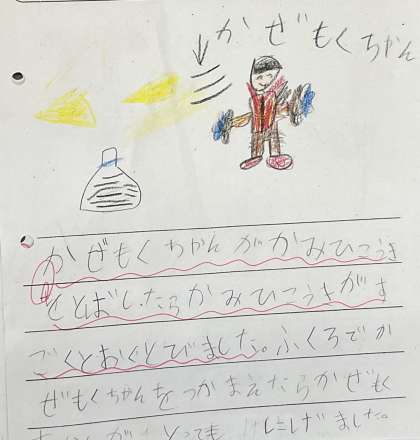 かぜもくちゃん
かぜもくちゃんがかみひこうき
をとばしたらかみひこうきがす
ごくとおくとびました。ふくろでか
ぜもくちゃんをつかまえたらかぜもく
とっても しました。